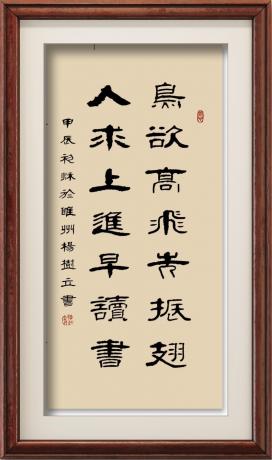 鳥欲高飛先振翅
人求上進早讀書
甲辰初秋於睢州楊樹立書